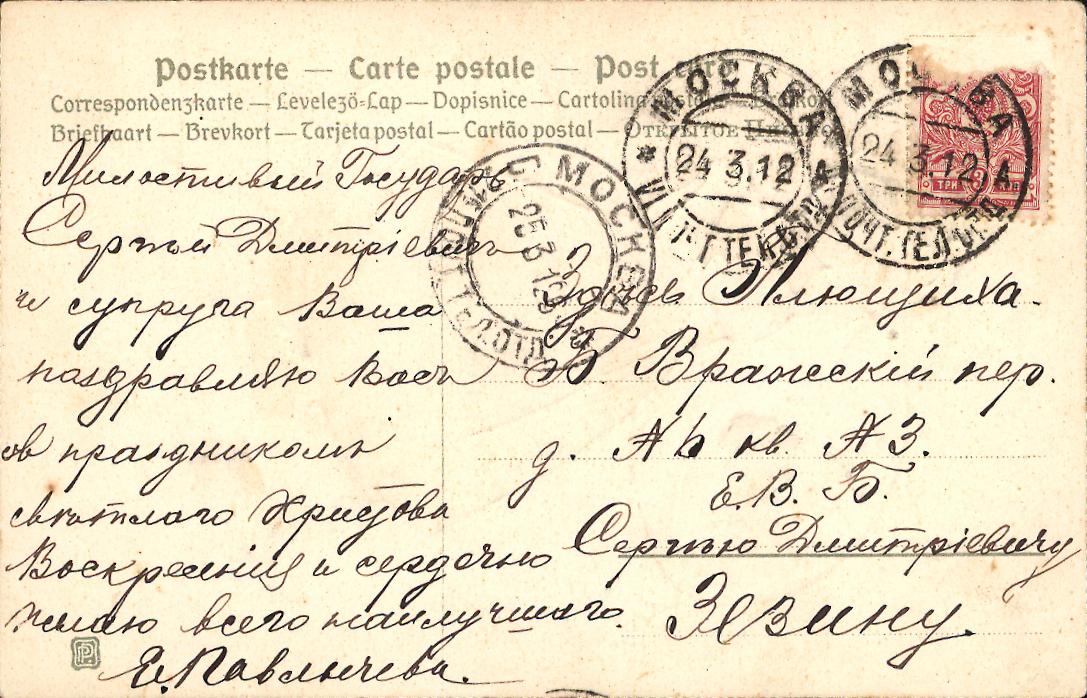 Postkarte — Carte postale — Post card
Correspondenzkarte — Levelező-Lap — Dopisnice — Cartolina
Briefkaart — Brevkort — Tarjeta postal — Cartão postal — Открытое
МОСКВА
24 3.12
МОСКВА
24 3.12
ПОЧТ. ТЕЛ.
ТРИ
МОСКВА
25 3 12
Милостивый Государь
Сергѣй Дмитріевичъ
и супруга Ваша
поздравляю Васъ
съ праздникомъ
свѣтлаго Христова
Воскресенія и сердечно
желаю всего наилучшаго.
Е. Павлычева.
Здѣсь Плющиха.
Б. Вражскій пер.
д. № 6 кв. № 3.
Е. В. Б.
Сергѣю Дмитріевичу
Зѣвину.